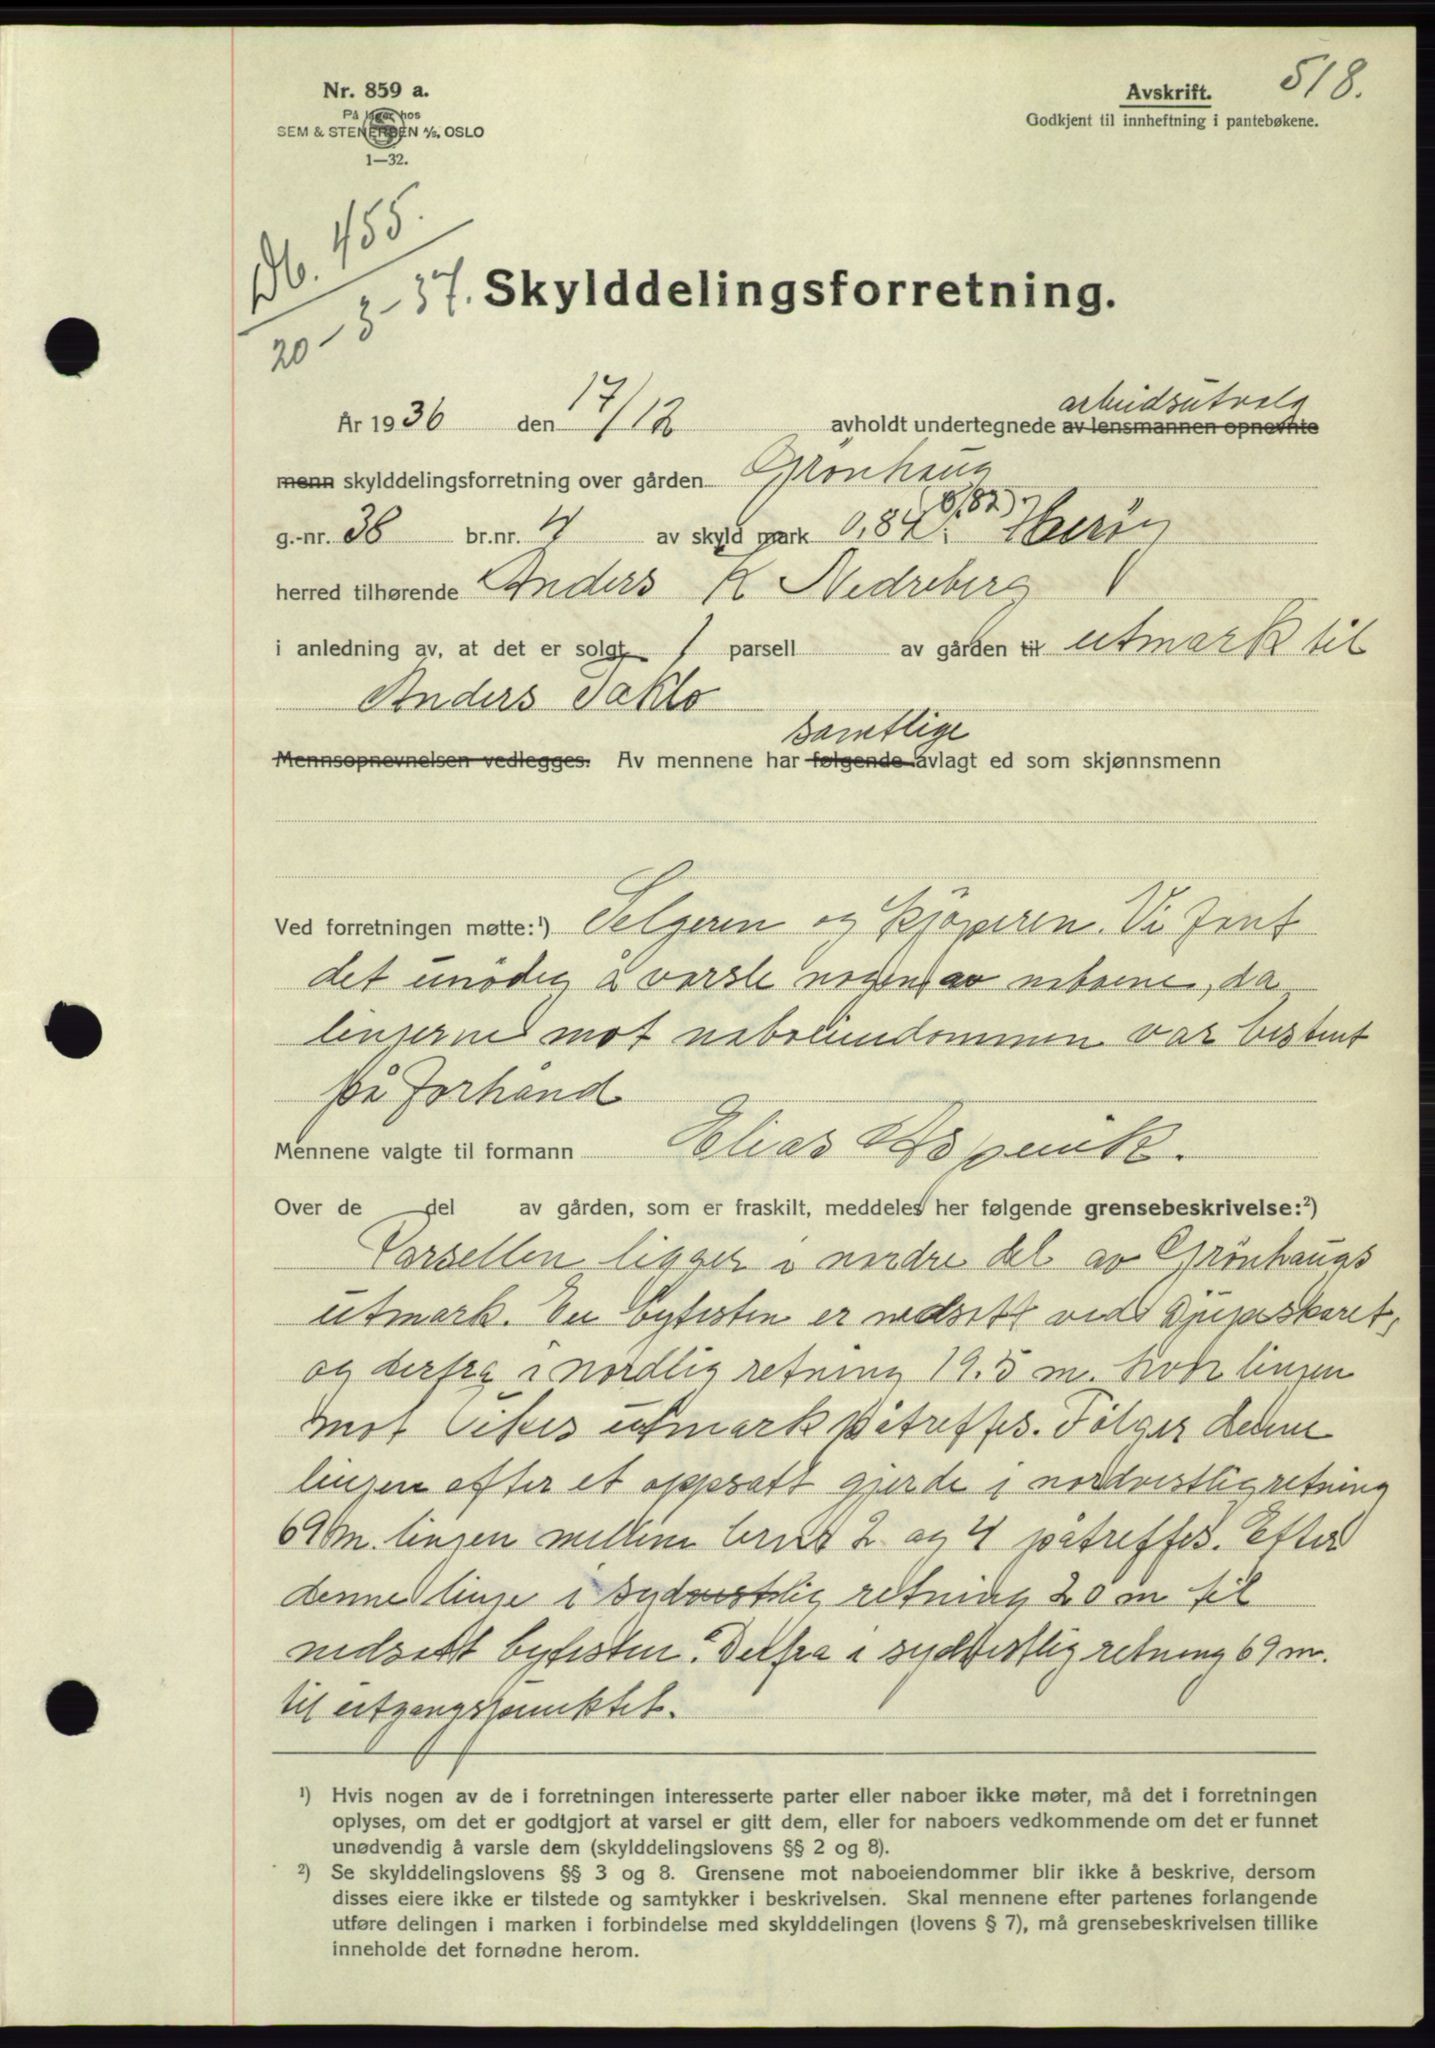 518.
Nr. 859 a.
På lager hos
SEM & STENERSEN A/S, OSLO
1—32.
Avskrift.
Godkjent til innheftning i pantebøkene.
Db. 455.
20-3-37.
Skylddelingsforretning.
År 1936 den 17/12 avholdt undertegnede av lensmannen opnevnte arbeidsutvalg
menn skylddelingsforretning over gården Grönhaug
g.-nr. 38 br.nr. 4 av skyld mark 0,84 (0,82) i Herøy
herred tilhørende Anders K Nedreberg
i anledning av, at det er solgt 1 parsell av gården til utmark til
Anders Taklo
samtlige
Mennsopnevnelsen vedlegges. Av mennene har følgende avlagt ed som skjønnsmenn
Ved forretningen møtte:¹) Selgeren og kjöperen. Vi fant
det unödig å varsle nogen av naboene, da
linjerne mot naboeiendommen var bestemt
på forhånd
Mennene valgte til formann Elias Aspevik.
Over de del av gården, som er fraskilt, meddeles her følgende grensebeskrivelse:²)
Parsellen ligger i nordre del av Grönhaugs
utmark. En bytesten er nedsatt ved Djupskaret,
og derfra i nordlig retning 19.5 m. hvor linjen
mot Vikes utmark påtreffes. Fölger denne
linjen efter et oppsatt gjerde i nordvestlig retning
69 m. linjen mellem brnr 2 og 4 påtreffes. Efter
denne linje i sydvestlig retning 20 m til
nedsatt bytesten. Derfra i sydvestlig retning 69 m.
til utgangspunktet.
¹) Hvis nogen av de i forretningen interesserte parter eller naboer ikke møter, må det i forretningen
oplyses, om det er godtgjort at varsel er gitt dem, eller for naboers vedkommende om det er funnet
unødvendig å varsle dem (skylddelingslovens §§ 2 og 8).
²) Se skylddelingslovens §§ 3 og 8. Grensene mot naboeiendommer blir ikke å beskrive, dersom
disses eiere ikke er tilstede og samtykker i beskrivelsen. Skal mennene efter partenes forlangende
utføre delingen i marken i forbindelse med skylddelingen (lovens § 7), må grensebeskrivelsen tillike
inneholde det fornødne herom.